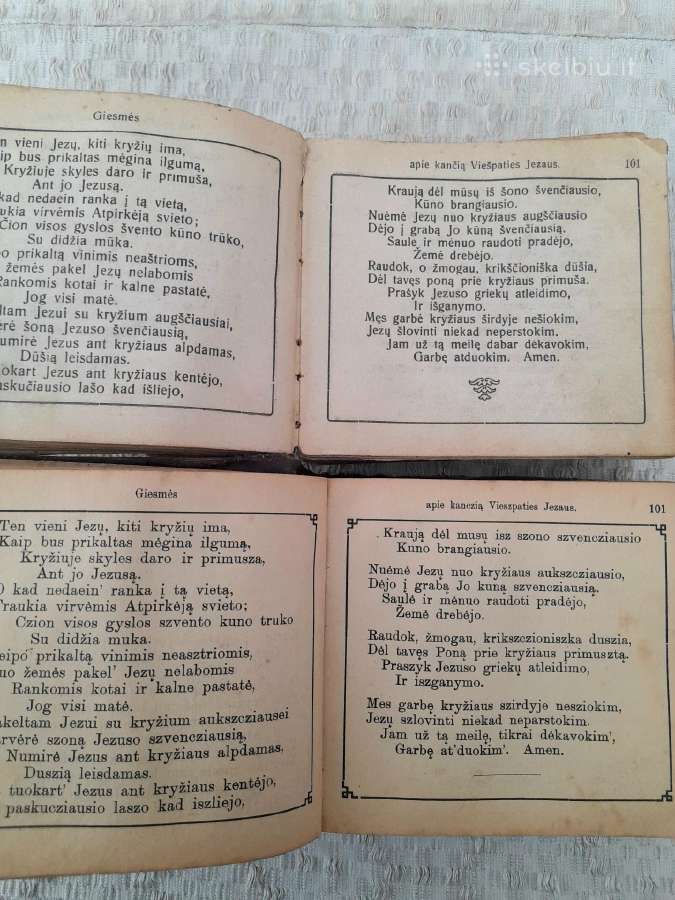 skelbiu.lt
Giesmės
vieni Jezų, kiti kryžių ima,
bus prikaltas mėgina ilgumą,
Kryžiuje skyles daro ir primuša,
Ant jo Jezusą.
kad nedaein ranka į tą vietą,
virvėmis Atpirkėją svieto;
Čion visos gyslos švento kūno trūko,
Su didžia mūka.
prikaltą vinimis neaštrioms,
žemės pakel Jezų nelabomis
Rankomis kotai ir kalne pastatė,
Jog visi matė.
Jezui su kryžium augščiausiai,
šoną Jezuso švenčiausią,
Jezus ant kryžiaus alpdamas,
Dūšią leisdamas.
Jezus ant kryžiaus kentėjo,
lašo kad išliejo,
apie kančią Viešpaties Jezaus.
101
Kraują dėl mūsų iš šono švenčiausio,
Kūno brangiausio.
Nuėmė Jezų nuo kryžiaus augščiausio
Dėjo į grabą Jo kūną švenčiausią.
Saulę ir mėnuo raudoti pradėjo,
Žemė drebėjo.
Raudok, o žmogau, krikščioniška dūšia,
Dėl tavęs poną prie kryžiaus primuša.
Prašyk Jezuso griekų atleidimo,
Ir išganymo.
Męs garbė kryžiaus širdyje nešiokim,
Jezų šlovinti niekad neperstokim.
Jam už tą meilę dabar dėkavokim,
Garbę atduokim. Amen.
Giesmės
Ten vieni Jezų, kiti kryžių ima,
Kaip bus prikaltas mėgina ilgumą,
Kryžiuje skyles daro ir primusza,
Ant jo Jezusą.
O kad nedaein' ranka į tą vietą,
Traukia virvėmis Atpirkėją svieto;
Czion visos gyslos szvento kuno truko
Su didžia muka.
prikaltą vinimis neasztriomis,
žemės pakel' Jezų nelabomis
Rankomis kotai ir kalne pastatė,
Jog visi matė.
Jezui su kryžium aukszcziausei
szoną Jezuso szvencziausią,
Numirė Jezus ant kryžiaus alpdamas,
Duszią leisdamas.
tuokart' Jezus ant kryžiaus kentėjo,
paskucziausio laszo kad iszliejo,
apie kanczią Vieszpaties Jezaus.
101
Kraują dėl musų isz szono szvencziausio
Kuno brangiausio.
Nuėmė Jezų nuo kryžiaus aukszcziausio,
Dėjo į grabą Jo kuną szvencziausią.
Saulė ir mėnuo raudoti pradėjo,
Žemė drebėjo.
Raudok, žmogau, krikszczioniszka duszia,
Dėl tavęs Poną prie kryžiaus primusztą.
Praszyk Jezuso griekų atleidimo,
Ir iszganymo.
Mes garbę kryžiaus szirdyje nesziokim,
Jezų szlovinti niekad neparstokim.
Jam už tą meilę, tikrai dėkavokim',
Garbę at'duokim'. Amen.